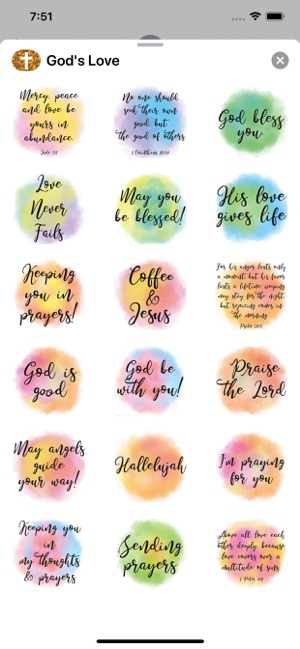 7:51
God's Love
Mercy, peace
and love be
yours in
abundance.
Jude 1:2
No one should
seek their own
good, but
the good of others
1 Corinthians 10:24
God bless
you.
Love
Never
Fails
May you
be blessed!
His love
gives life
Keeping
you in
prayers!
Coffee
&
Jesus
For his anger lasts only
a moment but his favor
lasts a lifetime; weeping
may stay for the night
but rejoicing comes in
the morning.
Psalm 30:5
God is
good
God be
with you!
Praise
the Lord
May angels
guide
your way!
Hallelujah
I'm praying
for you
Keeping you
in
my thoughts
& prayers
Sending
prayers
Above all love each
other deeply, because
love covers over a
multitude of sins
1 Peter 4:8